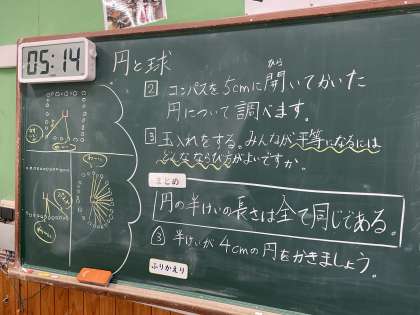 05:14
円と球
② コンパスを5cmに開いてかいた
から
円について調べます。
③ 玉入れをする。みんなが平等になるには
どんなならび方がよいですか。
まとめ
円の半けいの長さは全て同じである。
③ 半けいが4cmの円をかきましょう。
ふりかえり